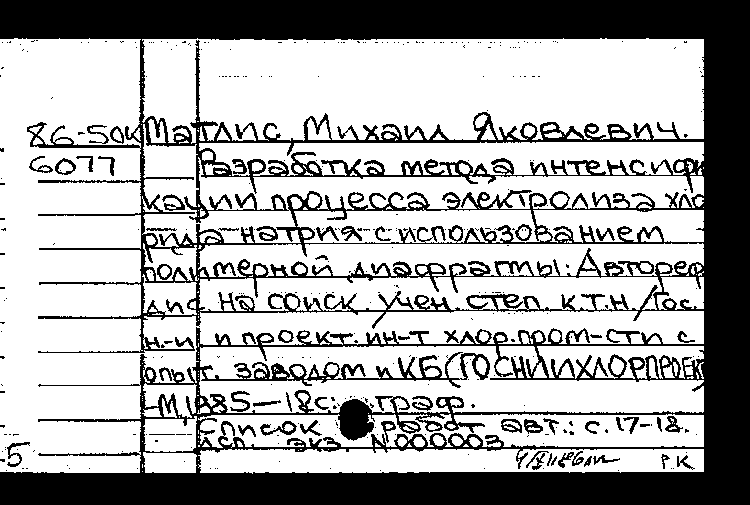 86-50К Матлис, Михаил Яковлевич.
6077 Разработка метода интенсифи
кации процесса электролиза хло
рида натрия с использованием
полимерной диафрагмы: Автореф
дис. на соиск. учен. степ. к.т.н. /Гос.
н.-и. и проект. ин-т хлор. пром-сти с
опыт. заводом и КБ (ГОСНИИХЛОРПРОЕКТ
-М., 1985.-18с.: граф.
Список работ авт.: с. 17-18.
экз. N 000003.
5 РК